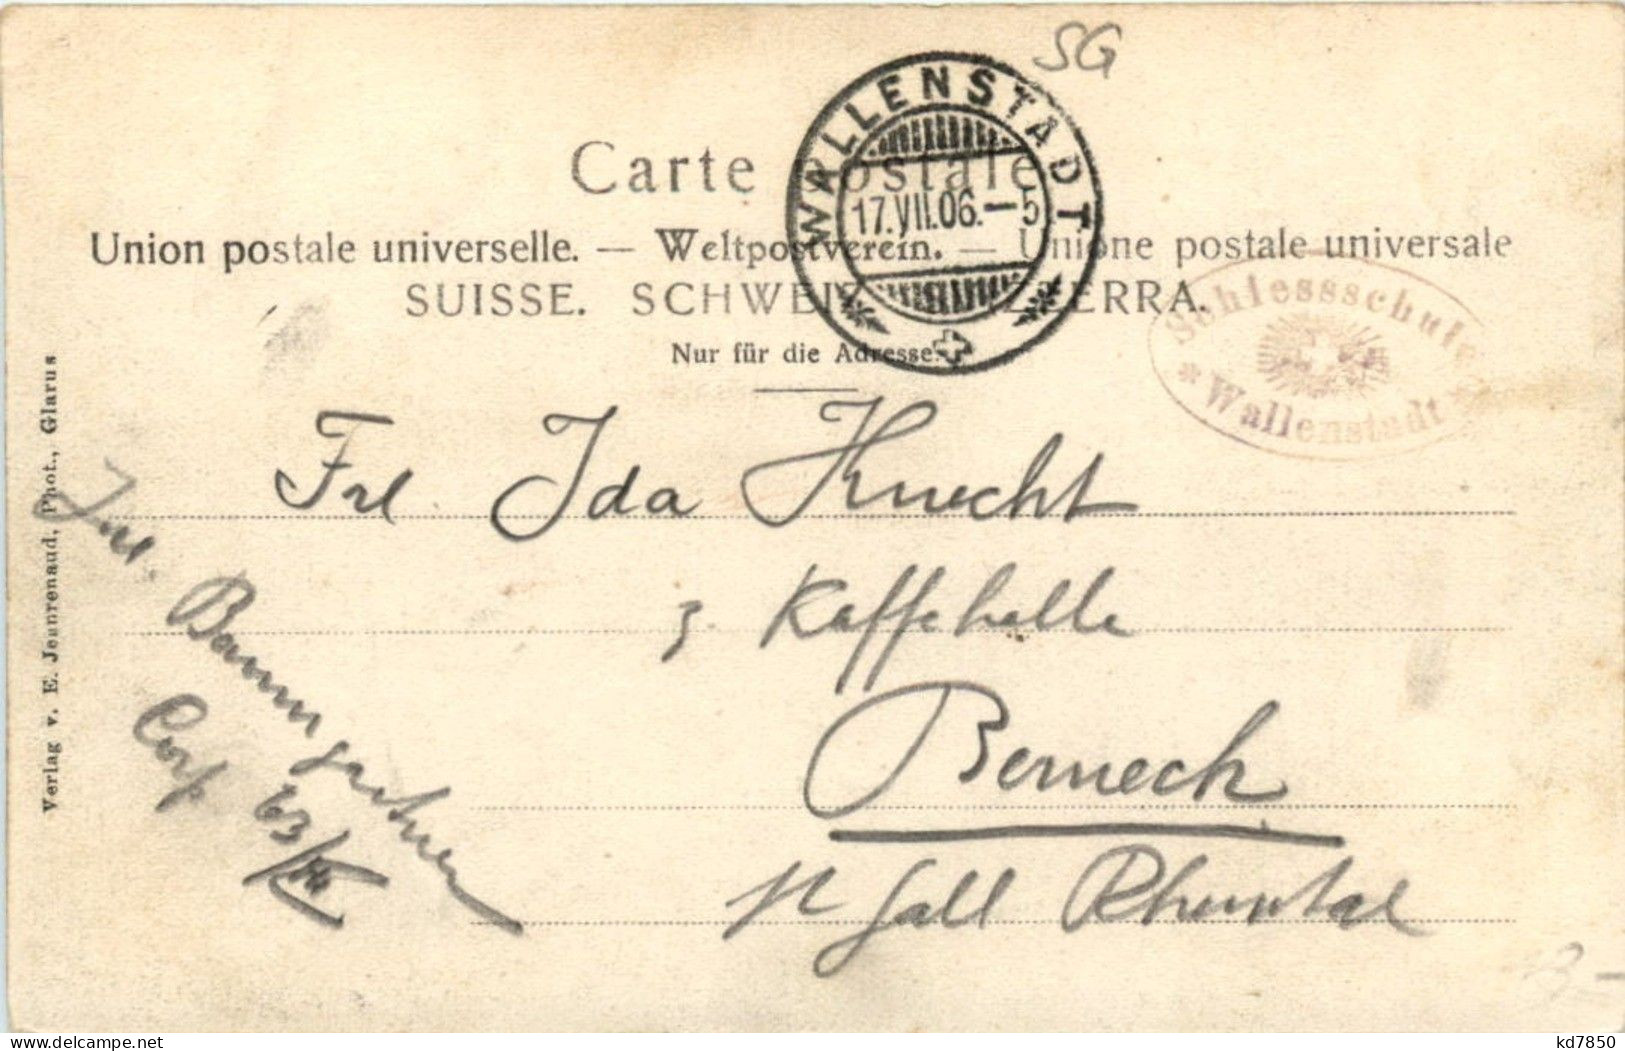 SG
WALLENSTADT
17.VII.06.-5
Carte Postale
Union postale universelle. — Weltpostverein. — Unione postale universale
SUISSE. SCHWEIZ. SVIZZERRA.
Nur für die Adresse.
Schiessschule
* Wallenstadt *
Frl Ida Knecht
z. Kaffehalle
Berneck
St Gall Rheintal
Baumgartner
Corp 63
Verlag v. E. Jeanrenaud, Phot., Glarus
3.-
kd7850